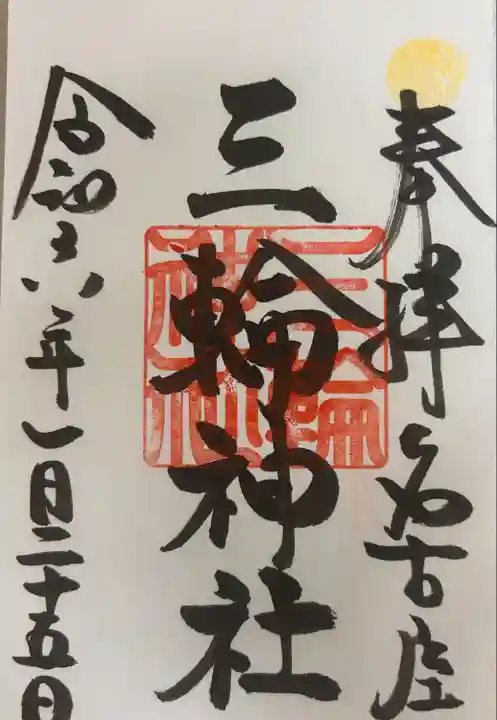 奉拝 名古屋
三輪神社
令和六年一月二十五日
三輪
神社